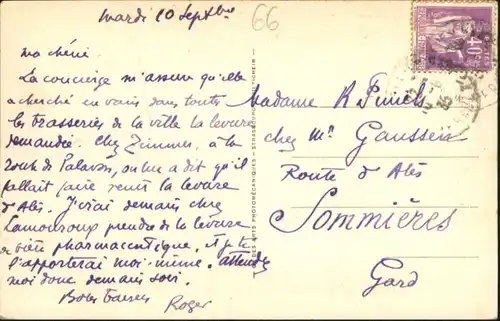 Mardi 10 Septbre
66
ma chérie.
La concierge m'assure qu'elle
a cherché en vain dans toutes
les brasseries de la ville la levure
demandée. Chez Zimmer, à la
route de Palavas, on lui a dit qu'il
fallait faire venir la levure
d'Alès. J'irai demain chez
Lamouroux prendre de la levure
de bière pharmaceutique, et je te
l'apporterai moi-même. attends
moi donc demain soir.
Bons baisers
Roger
Madame R.
chez Mr Gaussen
Route d'Alès
Sommières
Gard
40c